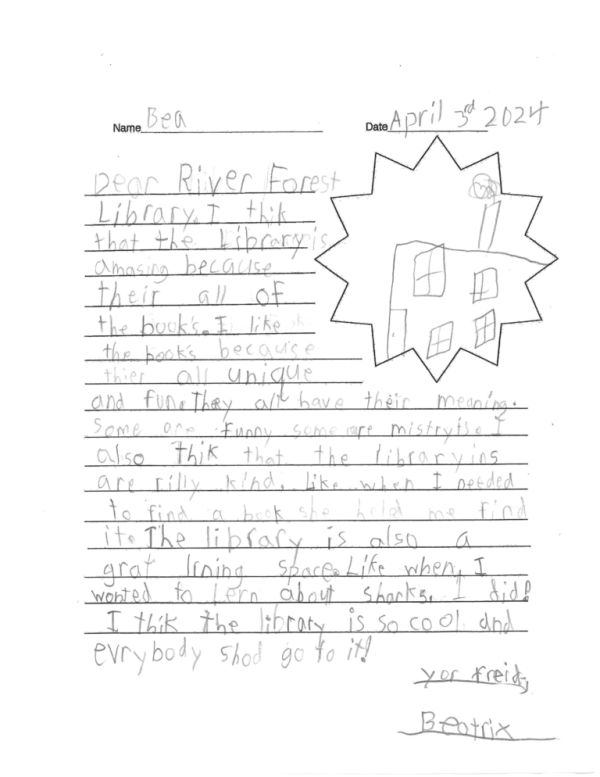 Name Bea
Date April 3rd 2024
Dear River Forest
Library. I thik
that the Library is
amasing because
their all of
the book's. I like
the book's because
thier all unique
and fun. They all have their meaning.
Some are funny some are mistryis. I
also thik that the libraryins
are rilly kind. Like when I needed
to find a book she held me find
it. The library is also a
grat lrning space. Like when, I
wonted to lern about sharks. I did!
I thik the library is so cool and
evrybody shod go to it!
yor freid,
Beatrix